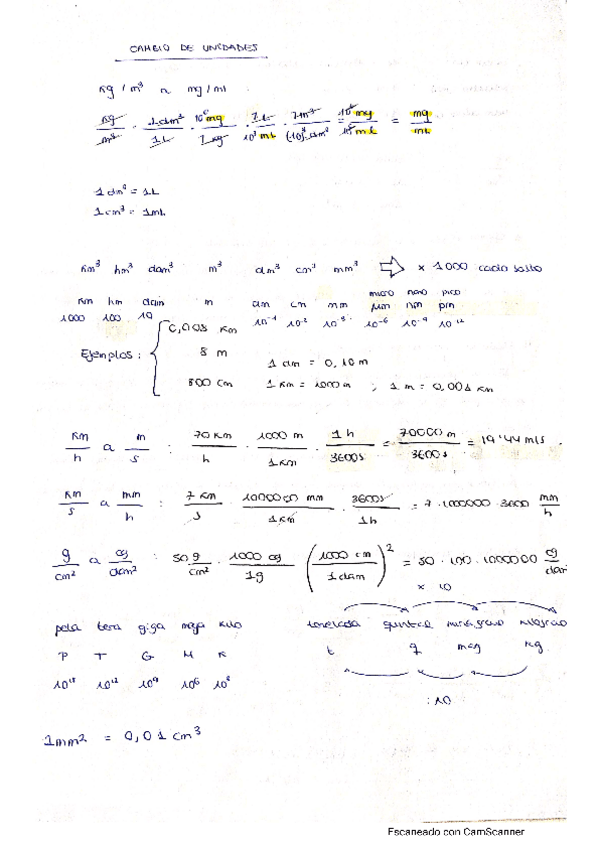 CAMBIO DE UNIDADES
Kg / m³ a mg / ml
Kg/m³ · 1 dm³/1L · 10⁶ mg/1 kg · 1L/10³ mL · 1m³/(10)³ dm³ = 10⁶ mg/10⁶ mL = mg/mL
1 dm³ = 1L
1 cm³ = 1mL
Km³ hm³ dam³ m³ dm³ cm³ mm³ ⇨ x 1000 cada salto
micro nano pico
Km hm dam m dm cm mm µm nm pm
1000 100 10 10⁻¹ 10⁻² 10⁻³ 10⁻⁶ 10⁻⁹ 10⁻¹²
Ejemplos : 0,008 Km
8 m 1 dm = 0,10 m
800 cm 1 Km = 1000 m ; 1 m = 0,001 Km
Km/h a m/s : 70 Km/h · 1000 m/1 Km · 1 h/3600s = 70000 m/3600 s = 19'44 m/s .
Km/s a mm/h : 7 Km/s · 1000000 mm/1 Km · 3600s/1h = 7 · 1000000 · 3600 mm/h
g/cm² a cg/dam² : 50 g/cm² · 1000 cg/1g (1000 cm/1 dam)² = 50 · 100 · 1000000 cg/dam
x 10
peta tera giga mega kilo tonelada quintal miriagramo kilogramo
P T G M K t q mag kg
10¹⁵ 10¹² 10⁹ 10⁶ 10³
: 10
1mm² = 0,01 cm³
Escaneado con CamScanner